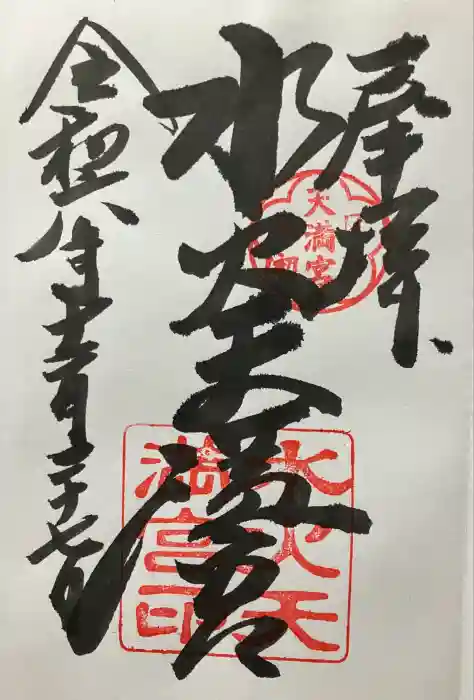 奉拝
水火天満宮
令和 年十二月二十七日
天満宮
水火天
満宮印